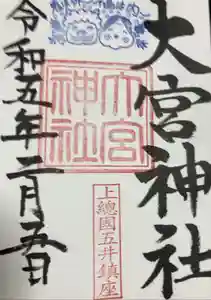 大宮神社
大宮
神社
上總國五井鎮座
令和五年二月五日